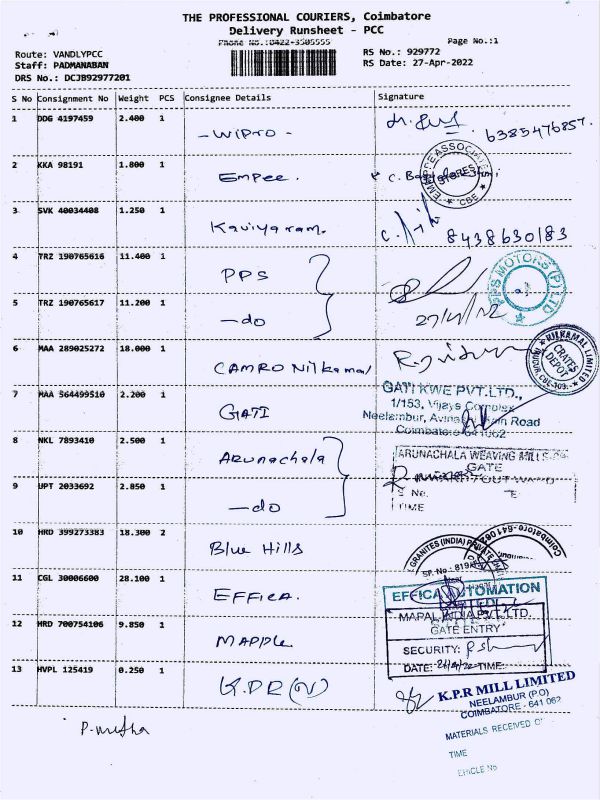 THE PROFESSIONAL COURIERS, Coimbatore
Delivery Runsheet - PCC
Phone No.:0422-3505555 Page No.:1
Route: VANDLYPCC RS No.: 929772
Staff: PADMANABAN RS Date: 27-Apr-2022
DRS No.: DCJB92977201
S No Consignment No Weight PCS Consignee Details Signature
1 DDG 4197459 2.400 1 -WIPRO- 6385476857.
2 KKA 98191 1.800 1 Empee.
EMPEE ASSOCIATE STORES CBE
3 SVK 40034408 1.250 1 Kaviyaram. 8438630183
4 TRZ 190765616 11.400 1 PPS
PPS MOTORS (P) LTD
5 TRZ 190765617 11.200 1 -do 27/4/22
6 MAA 289025272 18.000 1 CAMRO Nilkamal
NILKAMAL LIMITED CRATES DEPOT
7 MAA 564499510 2.200 1 GATI
GATI KWE PVT.LTD.,
1/153, Vijaya Complex
Neelambur, Road
Coimbatore 641062
8 NKL 7893410 2.500 1 Arunachala
ARUNACHALA WEAVING MILLS
GATE
OUTWARD
9 UPT 2033692 2.850 1 -do
No.
TIME
10 HRD 399273383 18.300 2 Blue Hills
GRANITES (INDIA) PRIVATE
Coimbatore-641062
11 CGL 30006600 28.100 1 EFFICA.
EFFICA AUTOMATION
12 HRD 700754106 9.850 1 MAPPLE
MAPAL INDIA PVT.LTD.
GATE ENTRY
SECURITY:
DATE: TIME:
13 HVPL 125419 0.250 1 K.PR(N)
K.P.R MILL LIMITED
NEELAMBUR (P.O)
COIMBATORE - 641 062
MATERIALS RECEIVED
TIME
P.mutha